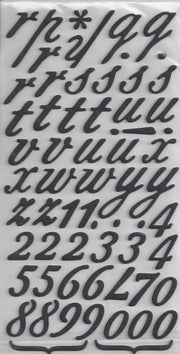 r r * y ! q q
r r s s s s
t t t t u u
v v u u x
x w w y y
z z 1 1 . . 4
2 2 2 3 3 4
5 5 6 6 7 0
8 8 9 9 0 0 0